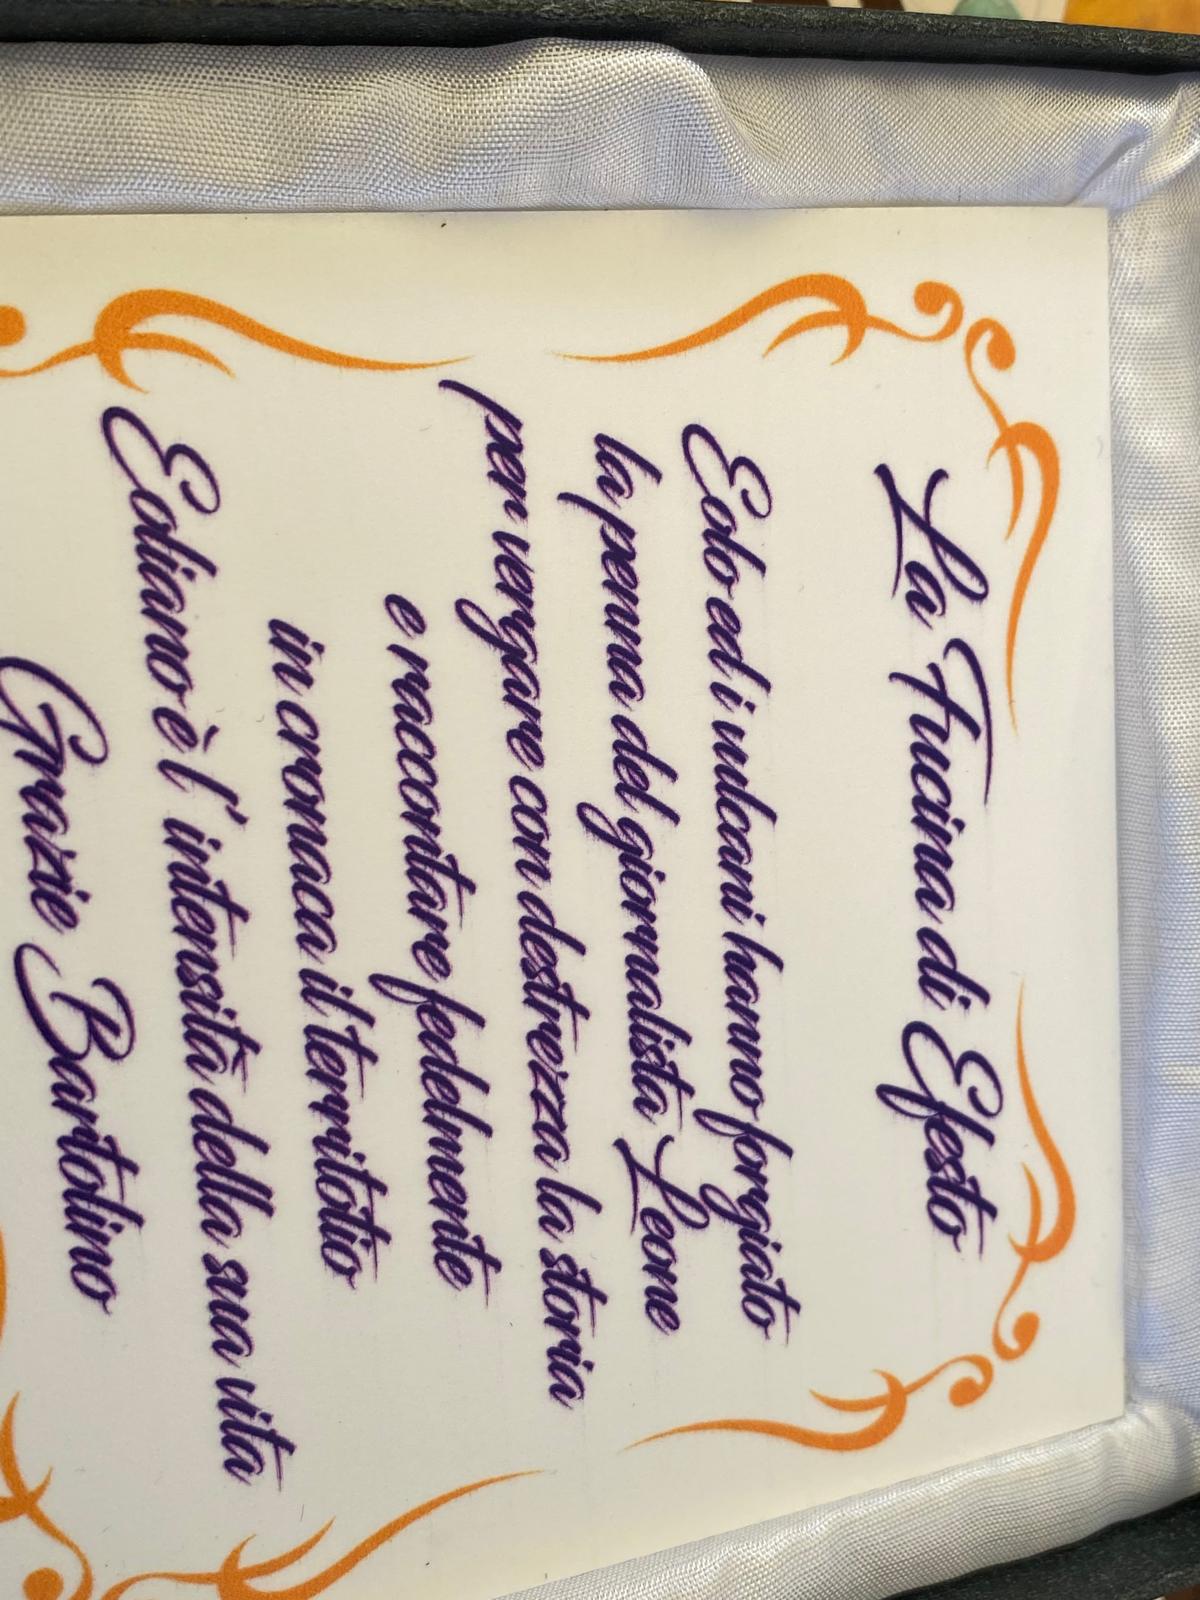 La Fucina di Efesto
Eolo ed i vulcani hanno forgiato
la penna del giornalista Leone
per vergare con destrezza la storia
e raccontare fedelmente
in cronaca il territotio
Eoliano è l'intensità della sua vita
Grazie Bartolino